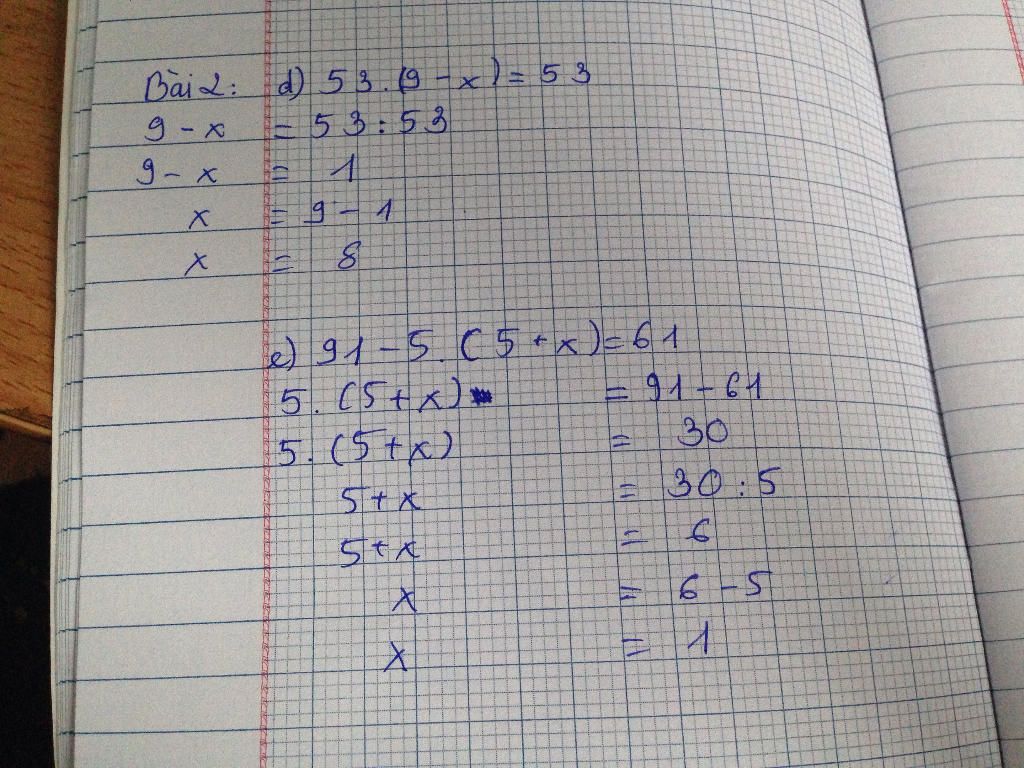 Bài 2: d) 53.(9-x)=53
9-x = 53:53
9-x = 1
x = 9-1
x = 8
e) 91-5.(5+x)=61
5.(5+x) = 91-61
5.(5+x) = 30
5+x = 30:5
5+x = 6
x = 6-5
x = 1